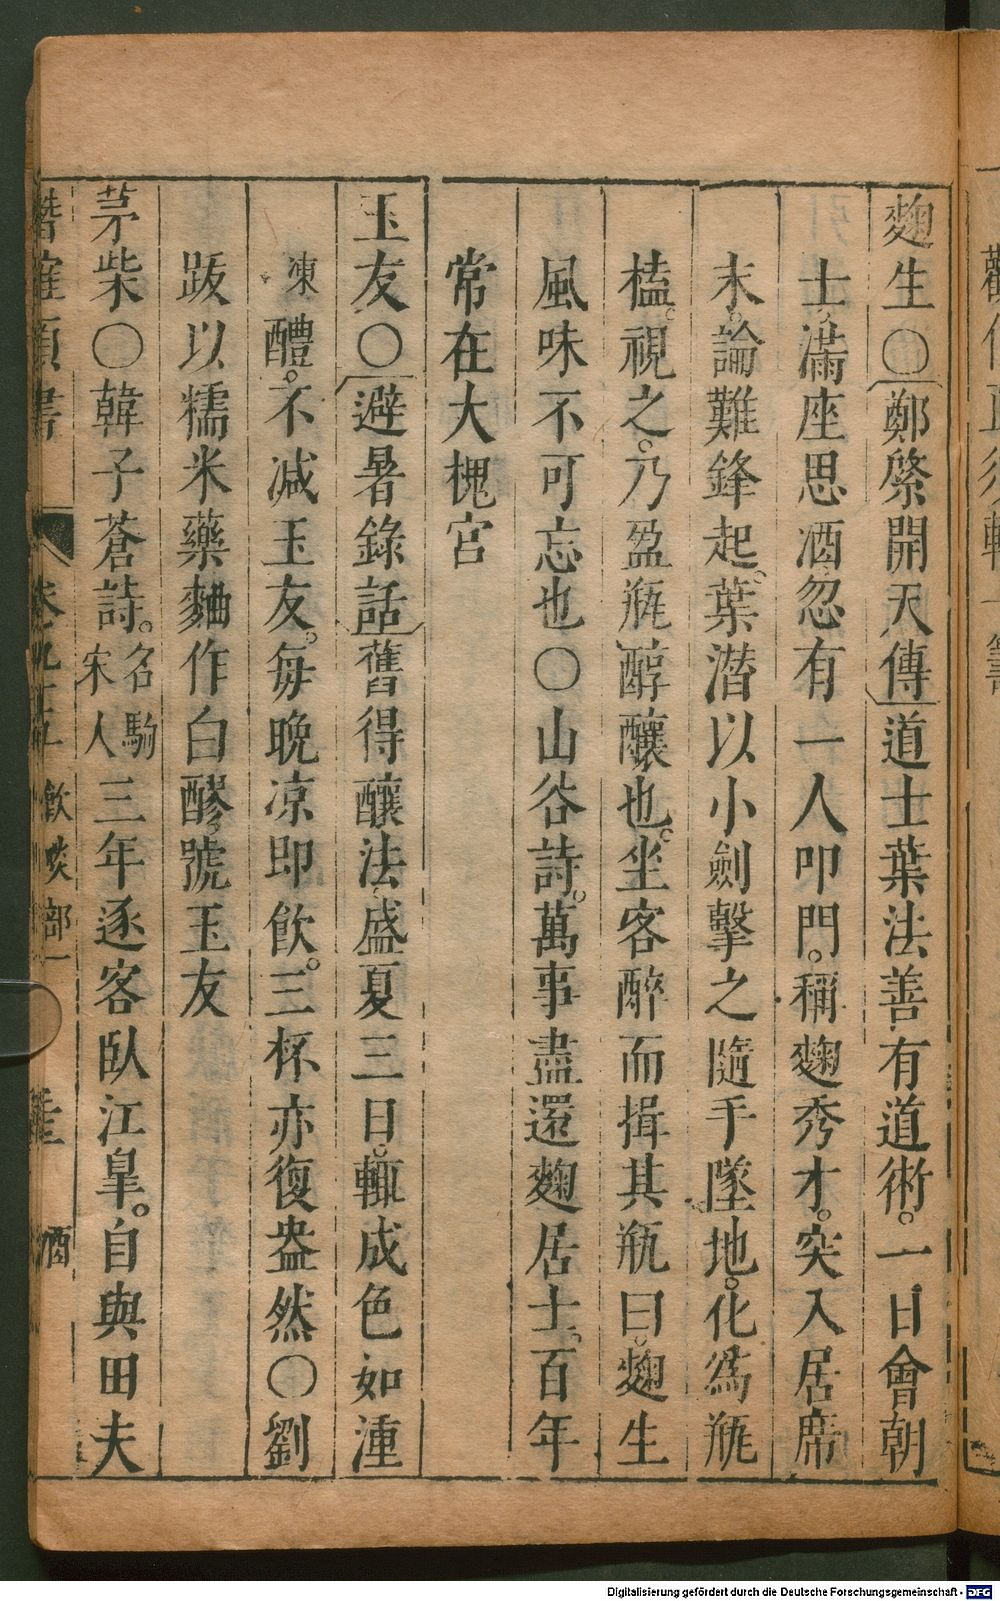 麴生○鄭棨開天傳道士葉法善有道術。一日會朝
士。滿座思酒忽有一人叩門。稱麴秀才。突入居席
末。論難鋒起。葉潛以小劍擊之隨手墜地。化為瓶
榼。視之。乃盈瓶醇釀也。坐客醉而揖其瓶曰。麴生
風味不可忘也○山谷詩。萬事盡還麴居士。百年
常在大槐宮
玉友○避暑錄話舊得釀法。盛夏三日。輒成色如湩
凍醴。不減玉友。每晚凉即飲。三杯亦復盎然○劉
跋以糯米藥麯作白醪。號玉友
茅柴○韓子蒼詩。名駒宋人三年逐客臥江皐。自與田夫
潛確類書 卷九十五 飲啖部一 酒
Digitalisierung gefördert durch die Deutsche Forschungsgemeinschaft - DFG